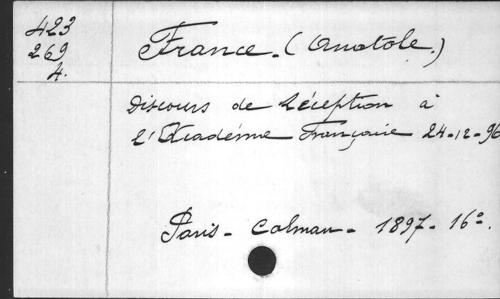 423
269
4.
France. (Anatole.)
Discours de Réception à
l'Académie Française 24-12-96
Paris - Calman - 1897 - 16°.